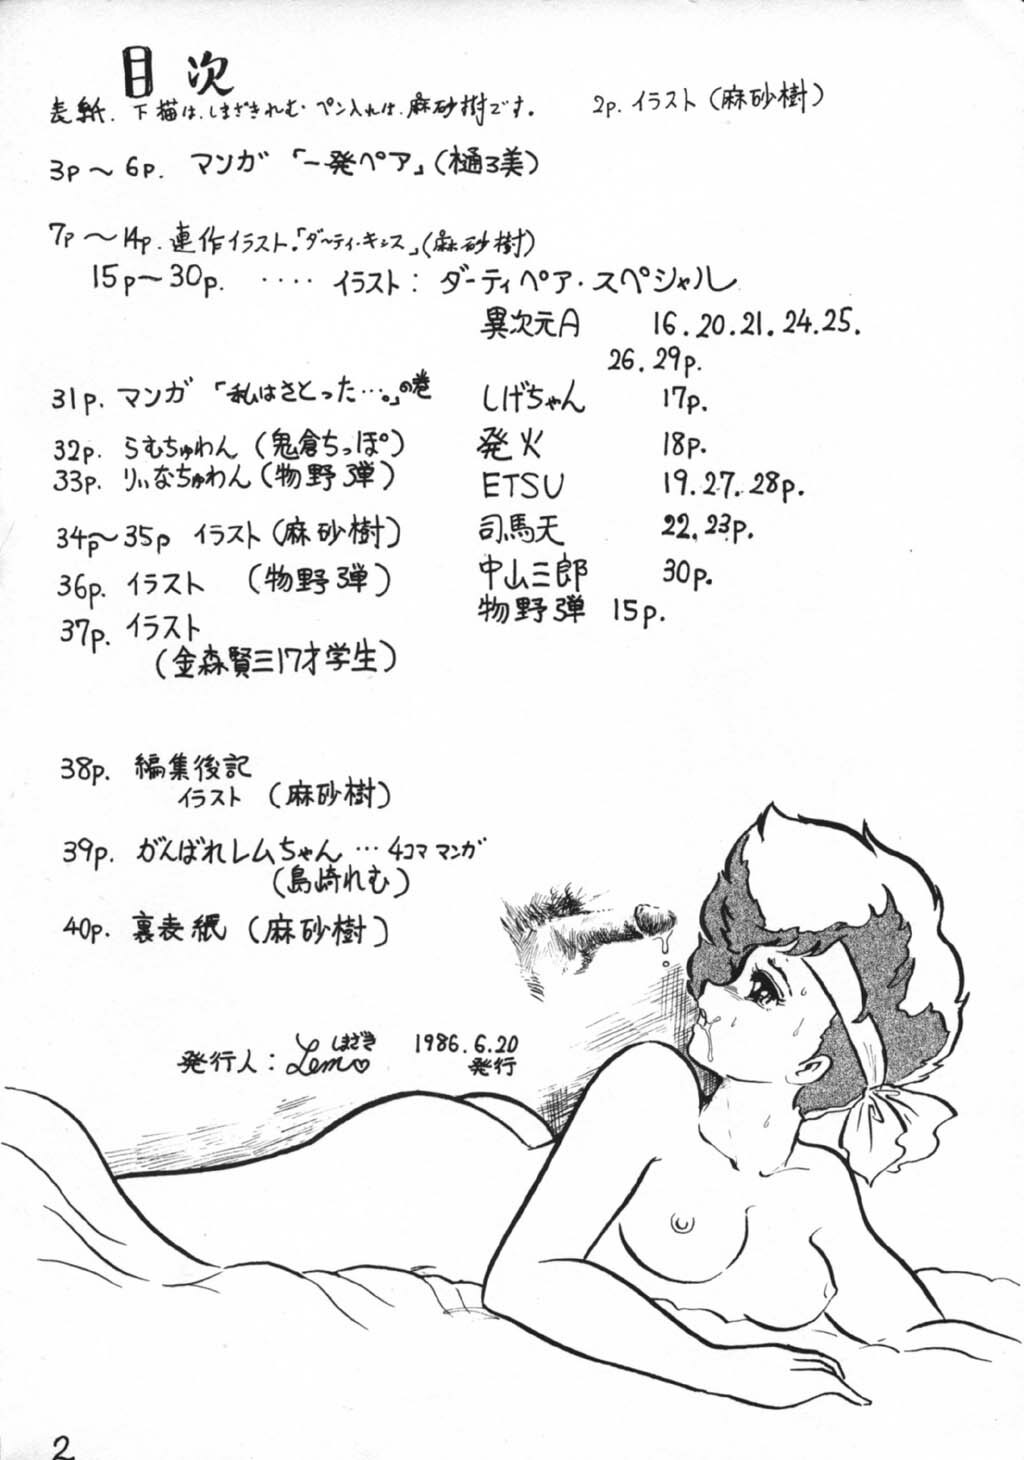 目次
表紙.下描は、しまざきれむ・ペン入れは、麻砂樹です。 2p.イラスト(麻砂樹)
3p〜6p. マンガ「一発ペア」(樋3美)
7p〜14p.連作イラスト.「ダーティ・キッス」(麻砂樹)
15p〜30p. ‥‥ イラスト: ダーティペア・スペシャル
異次元A 16.20.21.24.25.
26.29p.
しげちゃん 17p.
発火 18p.
ETSU 19.27.28p.
司馬天 22.23p.
中山三郎 30p.
物野弾 15p.
31p. マンガ「私はさとった…。」の巻
32p. らむちゅわん(鬼倉ちっぽ)
33p. りぃなちゅわん(物野弾)
34p〜35p イラスト(麻砂樹)
36p. イラスト (物野弾)
37p. イラスト
(金森賢三17才学生)
38p. 編集後記
イラスト (麻砂樹)
39p. がんばれレムちゃん…4コママンガ
(島崎れむ)
40p. 裏表紙(麻砂樹)
発行人:しまざき Lem♡ 1986.6.20
発行
2